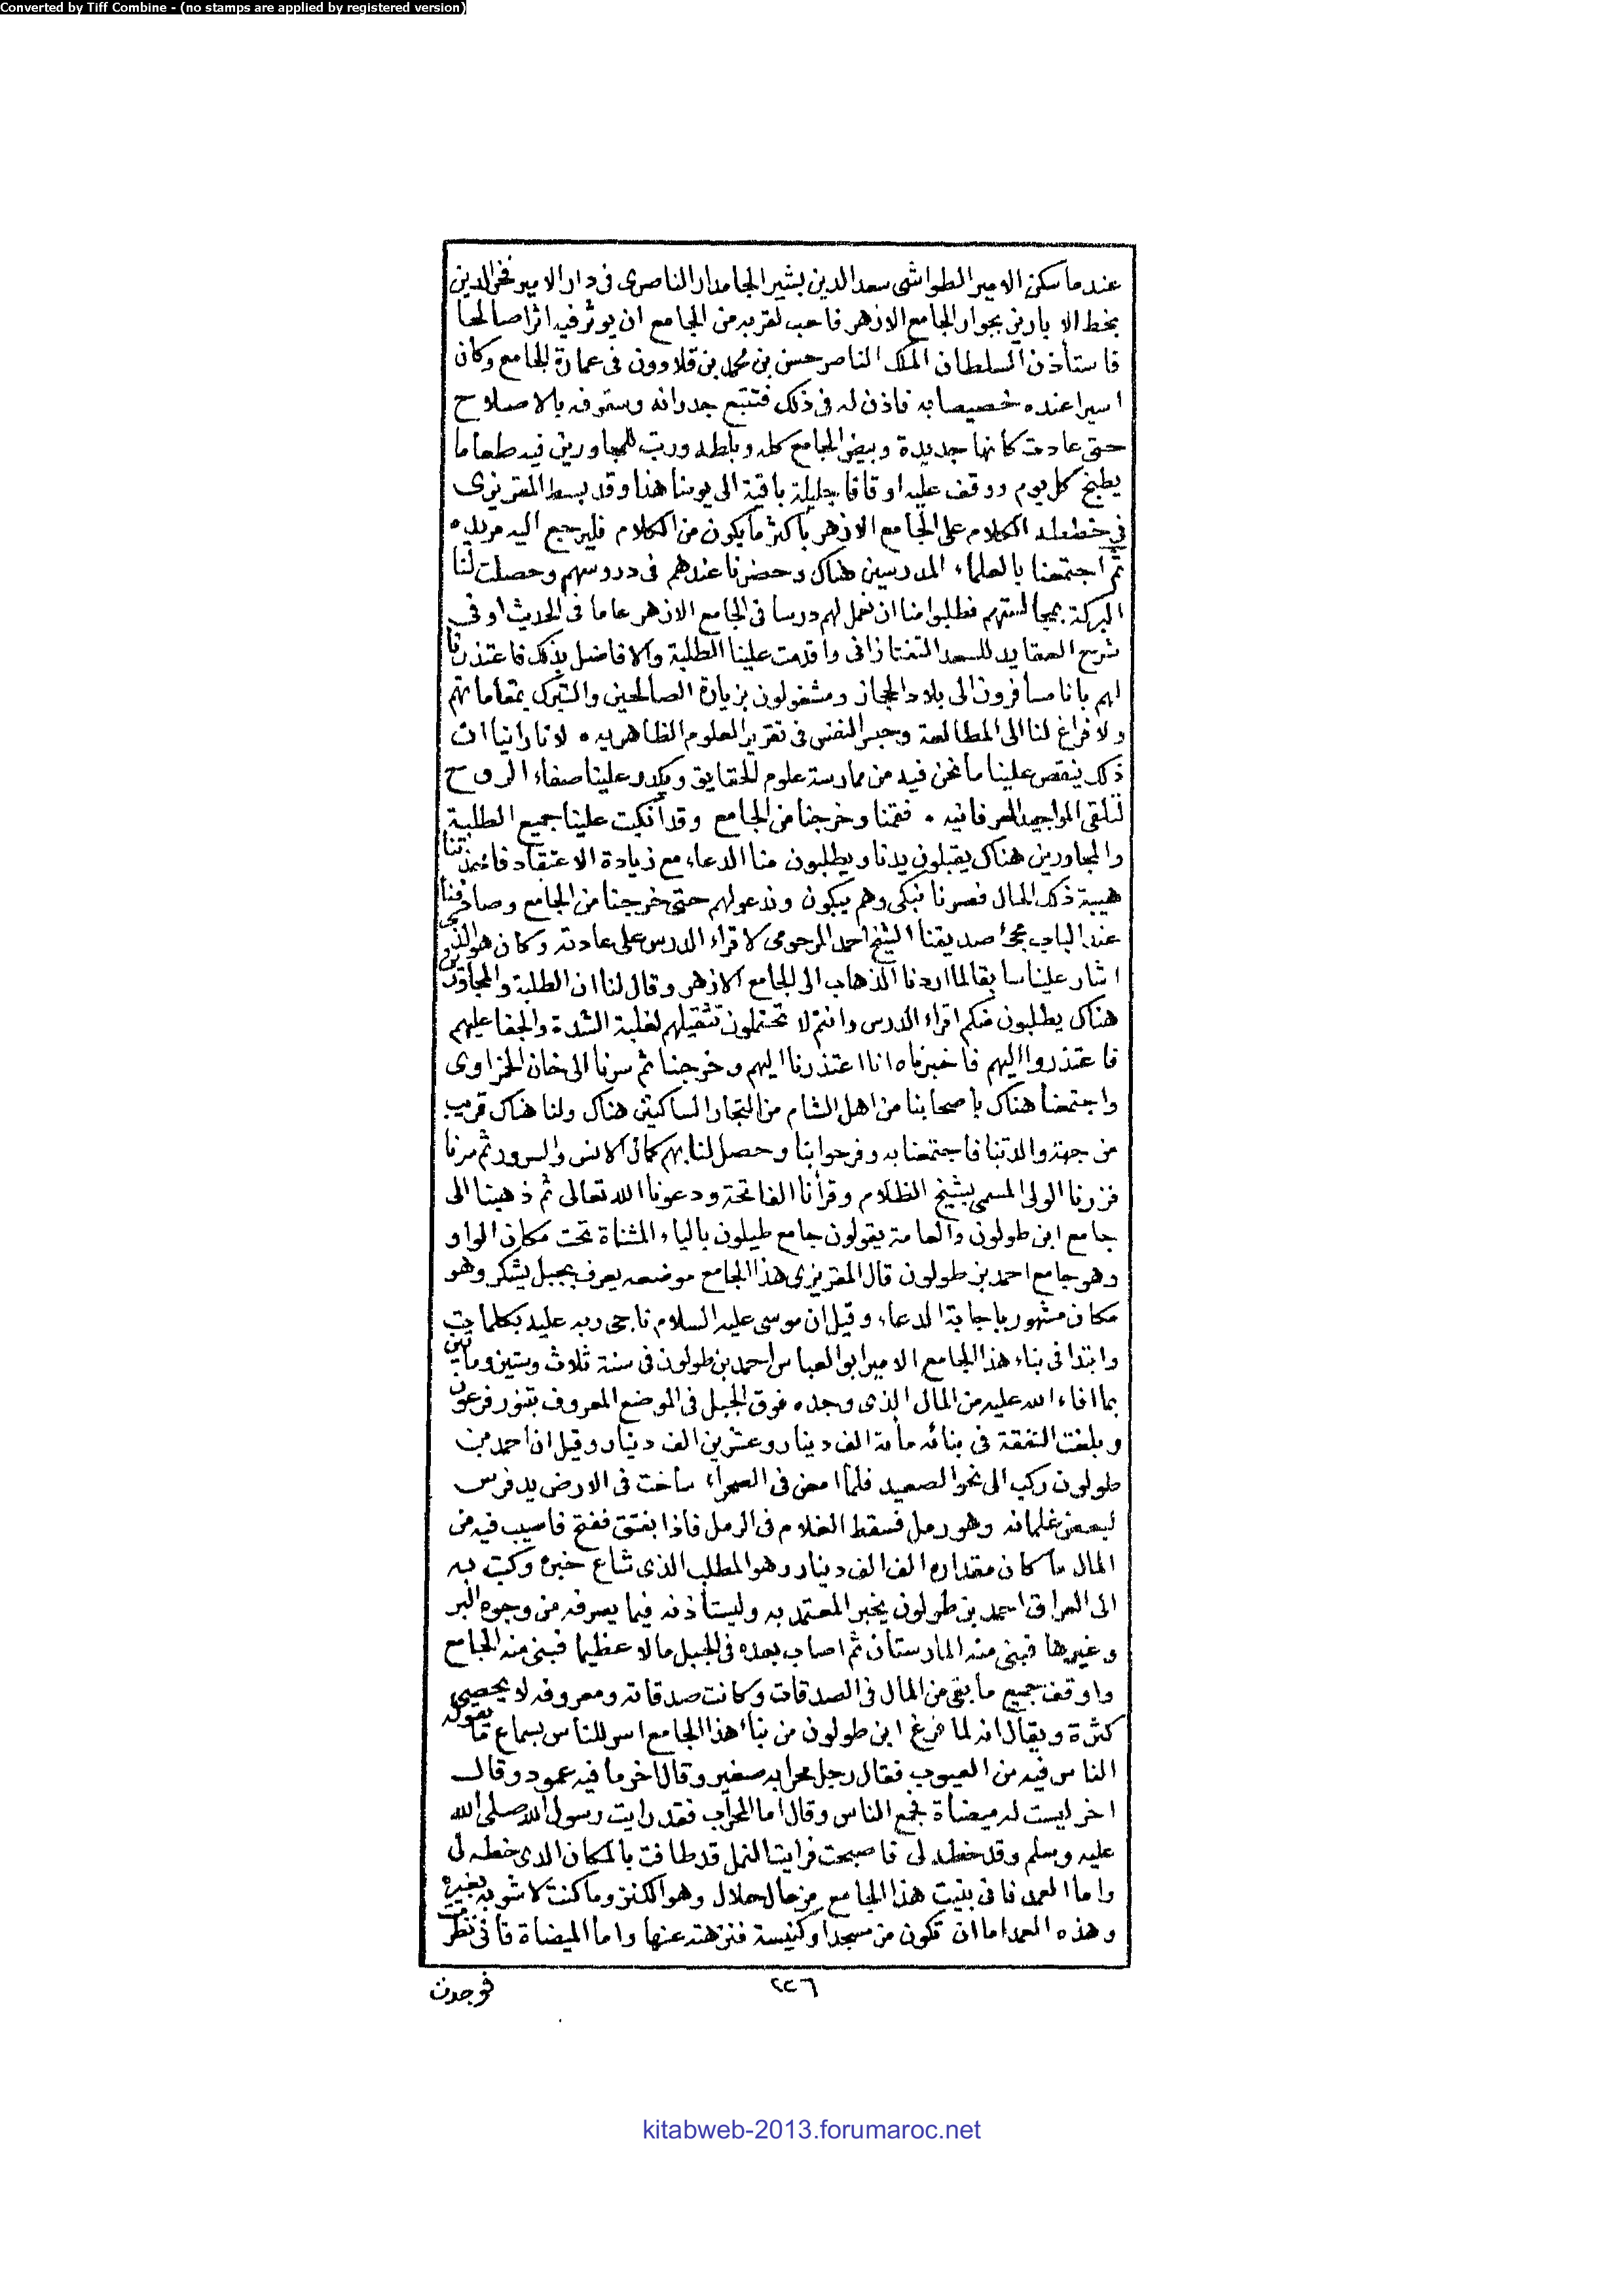 Converted by Tiff Combine - (no stamps are applied by registered version)
عندما سكن الامير الطواشى سعد الدين بشير الجامدار الناصرى فى دار الامير فخر الدين
بخط الابارين بجوار الجامع الازهر فاحب لقربه من الجامع ان يوثر فيه اثرا صالحا
فاستأذن السلطان الملك الناصر حسن بن محمد بن قلاوون فى عمارة الجامع وكان
اسيرا عنده خصيصا به فاذن له فى ذلك فتتبع جدرانه وسقوفه بالاصلاح
حتى عادت كانها جديدة وبيض الجامع كله وبلطه ورتب للمجاورين فيه طعاما
يطبخ كل يوم ووقف عليه اوقافا جليلة باقية الى يومنا هذا وقد بسط المقريزى
فى خططه الكلام على الجامع الازهر باكثر ما يكون من الكلام فليرجع اليه مريده
ثم اجتمعنا بالعلماء المدرسين هناك وحضرنا عندهم فى دروسهم وحصلت لنا
البركة بمجالستهم فطلبوا منا ان نعمل لهم درسا فى الجامع الازهر عاما فى الحديث او فى
شرح العقايد للسعد التفتازانى واقدمت علينا الطلبة والافاضل بذلك فاعتذرنا
لهم بانا مسافرون الى بلاد الحجاز ومشغولون بزيارة الصالحين والتبرك بمقاماتهم
ولا فراغ لنا الى المطالعة وحبس النفس فى تقرير العلوم الظاهريه ٠ لانا راينا ان
ذلك ينقص علينا ما نحن فيه من ممارسة علوم الحقايق ويكدر علينا صفاء الروح
لتلقى المواجيد العرفانيه ٠ فقمنا وخرجنا من الجامع وقد انكبت علينا جميع الطلبة
والمجاورين هناك يقبلون يدنا ويطلبون منا الدعاء مع زيادة الاعتقاد فاخذتنا
هيبة ذلك الحال فصرنا نبكى وهم يبكون وندعو لهم حتى خرجنا من الجامع وصادفنا
عند الباب مجئ صديقنا الشيخ احمد المرحومى لاقراء الدرس على عادته وكان هو الذى
اشار علينا سابقا لما اردنا الذهاب الى الجامع الازهر وقال لنا ان الطلبة والمجاورين
هناك يطلبون منكم اقراء الدرس وانتم لا تحتملون تثقيلهم لغلبة الشدة والجفا عليهم
فاعتذروا اليهم فاخبرناه انا اعتذرنا اليهم وخرجنا ثم سرنا الى خان الحمزاوى
واجتمعنا هناك باصحابنا من اهل الشام من التجار الساكنين هناك ولنا هناك قريب
من جهة والدتنا فاجتمعنا به وفرحوا بنا وحصل لنا بهم كمال الانس والسرور ثم سرنا
فزرنا الولى المسمى بشيخ الظلام وقرأنا الفاتحة ودعونا الله تعالى ثم ذهبنا الى
جامع ابن طولون والعامة يقولون جامع طيلون بالياء المثناة تحت مكان الواو
وهو جامع احمد بن طولون قال المقريزى هذا الجامع موضعه يعرف بجبل يشكر وهو
مكان مشهور باجابة الدعاء وقيل ان موسى عليه السلام ناجى ربه عليه بكلمات
وابتدا فى بناء هذا الجامع الامير ابو العباس احمد بن طولون فى سنة ثلاث وستين ومايتين
بما افاء الله عليه من المال الذى وجده فوق الجبل فى الموضع المعروف بتنور فرعون
وبلغت النفقة فى بنائه ماية الف دينار وعشرين الف دينار وقيل ان احمد بن
طولون ركب الى نحو الصعيد فلما امعن فى الصحراء ساخت فى الارض يد فرس
لبعض غلمانه وهو رمل فسقط الغلام فى الرمل فاذا بفتق ففتح فاصيب فيه من
المال ما كان مقداره الف الف دينار وهو المطلب الذى شاع خبره وكتب به
الى العراق احمد بن طولون يخبر المعتمد به وليستأذنه فيما يصرفه من وجوه البر
وغيرها فبنى منه المارستان ثم اصاب بعده فى الجبل مالا عظيما فبنى منه الجامع
واوقف جميع ما بقى من المال فى الصدقات وكانت صدقاته ومعروفه لا يحصى
كثرة ويقال انه لما فرغ ابن طولون من بناء هذا الجامع اسر للناس بسماع ما يقوله
الناس فيه من العيوب فقال رجل محرابه صغير وقال اخر ما فيه عمود وقال
اخر ليست له ميضاة فجمع الناس وقال اما المحراب فقد رايت رسول الله صلى الله
عليه وسلم وقد خطه لى فاصبحت فرايت النمل قد طافت بالمكان الذى خطه لى
واما العمد فانى بنيت هذا الجامع من مال حلال وهو الكنز وما كنت لاشوبه بغيره
وهذه العمد اما ان تكون من مسجد او كنيسة فنزهته عنها واما الميضاة فانى نظرت
٢٢٦
فوجدت
kitabweb-2013.forumaroc.net